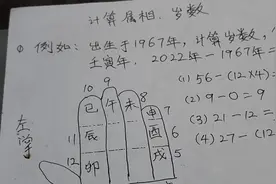 计算属相、岁数
① 例如：出生于1967年，计算岁数，
壬寅年．2022年－1967年＝
(1) 56－(12×4)＝
(2) 9－0＝9
(3) 21－12＝
(4) 27－(12
左掌
10 9 8 7 6 5
11 12
巳 午 未 申
辰 酉
卯 戌